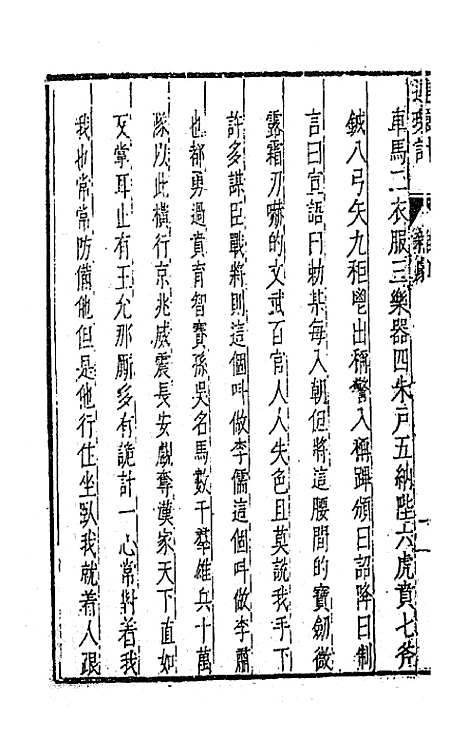 連環計
雜劇
車馬二衣服三樂器四朱戶五納陛六虎賁七斧
鉞八弓矢九秬鬯出稱警入稱蹕頒曰詔降曰制
言曰宣語曰勅某每入朝但將這腰間的寶劍微
露霜刃嚇的文武百官人人失色且莫說我手下
許多謀臣戰將則這個叫做李儒這個叫做李肅
也都勇過賁育智賽孫吳名馬數千羣雄兵十萬
隊以此橫行京兆威震長安覷奪漢家天下直如
反掌耳止有王允那廝多有詭計一心常對着我
我也常常防備他但是他行住坐臥我就着人跟